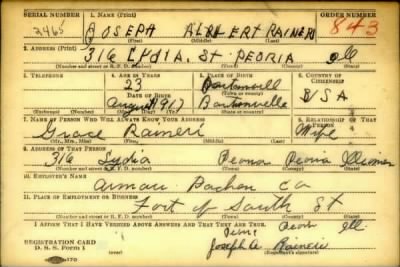 SERIAL NUMBER 1. NAME (Print) ORDER NUMBER
2465 JOSEPH ALBERT RAINERI 843
(First) (Middle) (Last)
2. ADDRESS (Print)
316 LYDIA. St PEORIA Ill
(Number and street or R. F. D. number) (Town) (County) (State)
3. TELEPHONE 4. AGE IN YEARS 5. PLACE OF BIRTH 6. COUNTRY OF CITIZENSHIP
23 Bartonville
DATE OF BIRTH (Town or county)
August 1917 Bartonville USA
(Exchange) (Number) (Mo.) (Day) (Yr.) (State or country)
7. NAME OF PERSON WHO WILL ALWAYS KNOW YOUR ADDRESS 8. RELATIONSHIP OF THAT PERSON
Grace Raineri Wife
(Mr., Mrs., Miss) (First) (Middle) (Last)
9. ADDRESS OF THAT PERSON
316 Lydia Peoria Peoria Illinois
(Number and street or R. F. D. number) (Town) (County) (State)
10. EMPLOYER'S NAME
Armour Co
11. PLACE OF EMPLOYMENT OR BUSINESS
Foot of South St
(Number and street or R. F. D. number) (Town) (County) (State)
I AFFIRM THAT I HAVE VERIFIED ABOVE ANSWERS AND THAT THEY ARE TRUE. Peoria Ill
REGISTRATION CARD
D. S. S. Form 1 Joseph A Raineri
(Registrant's signature)